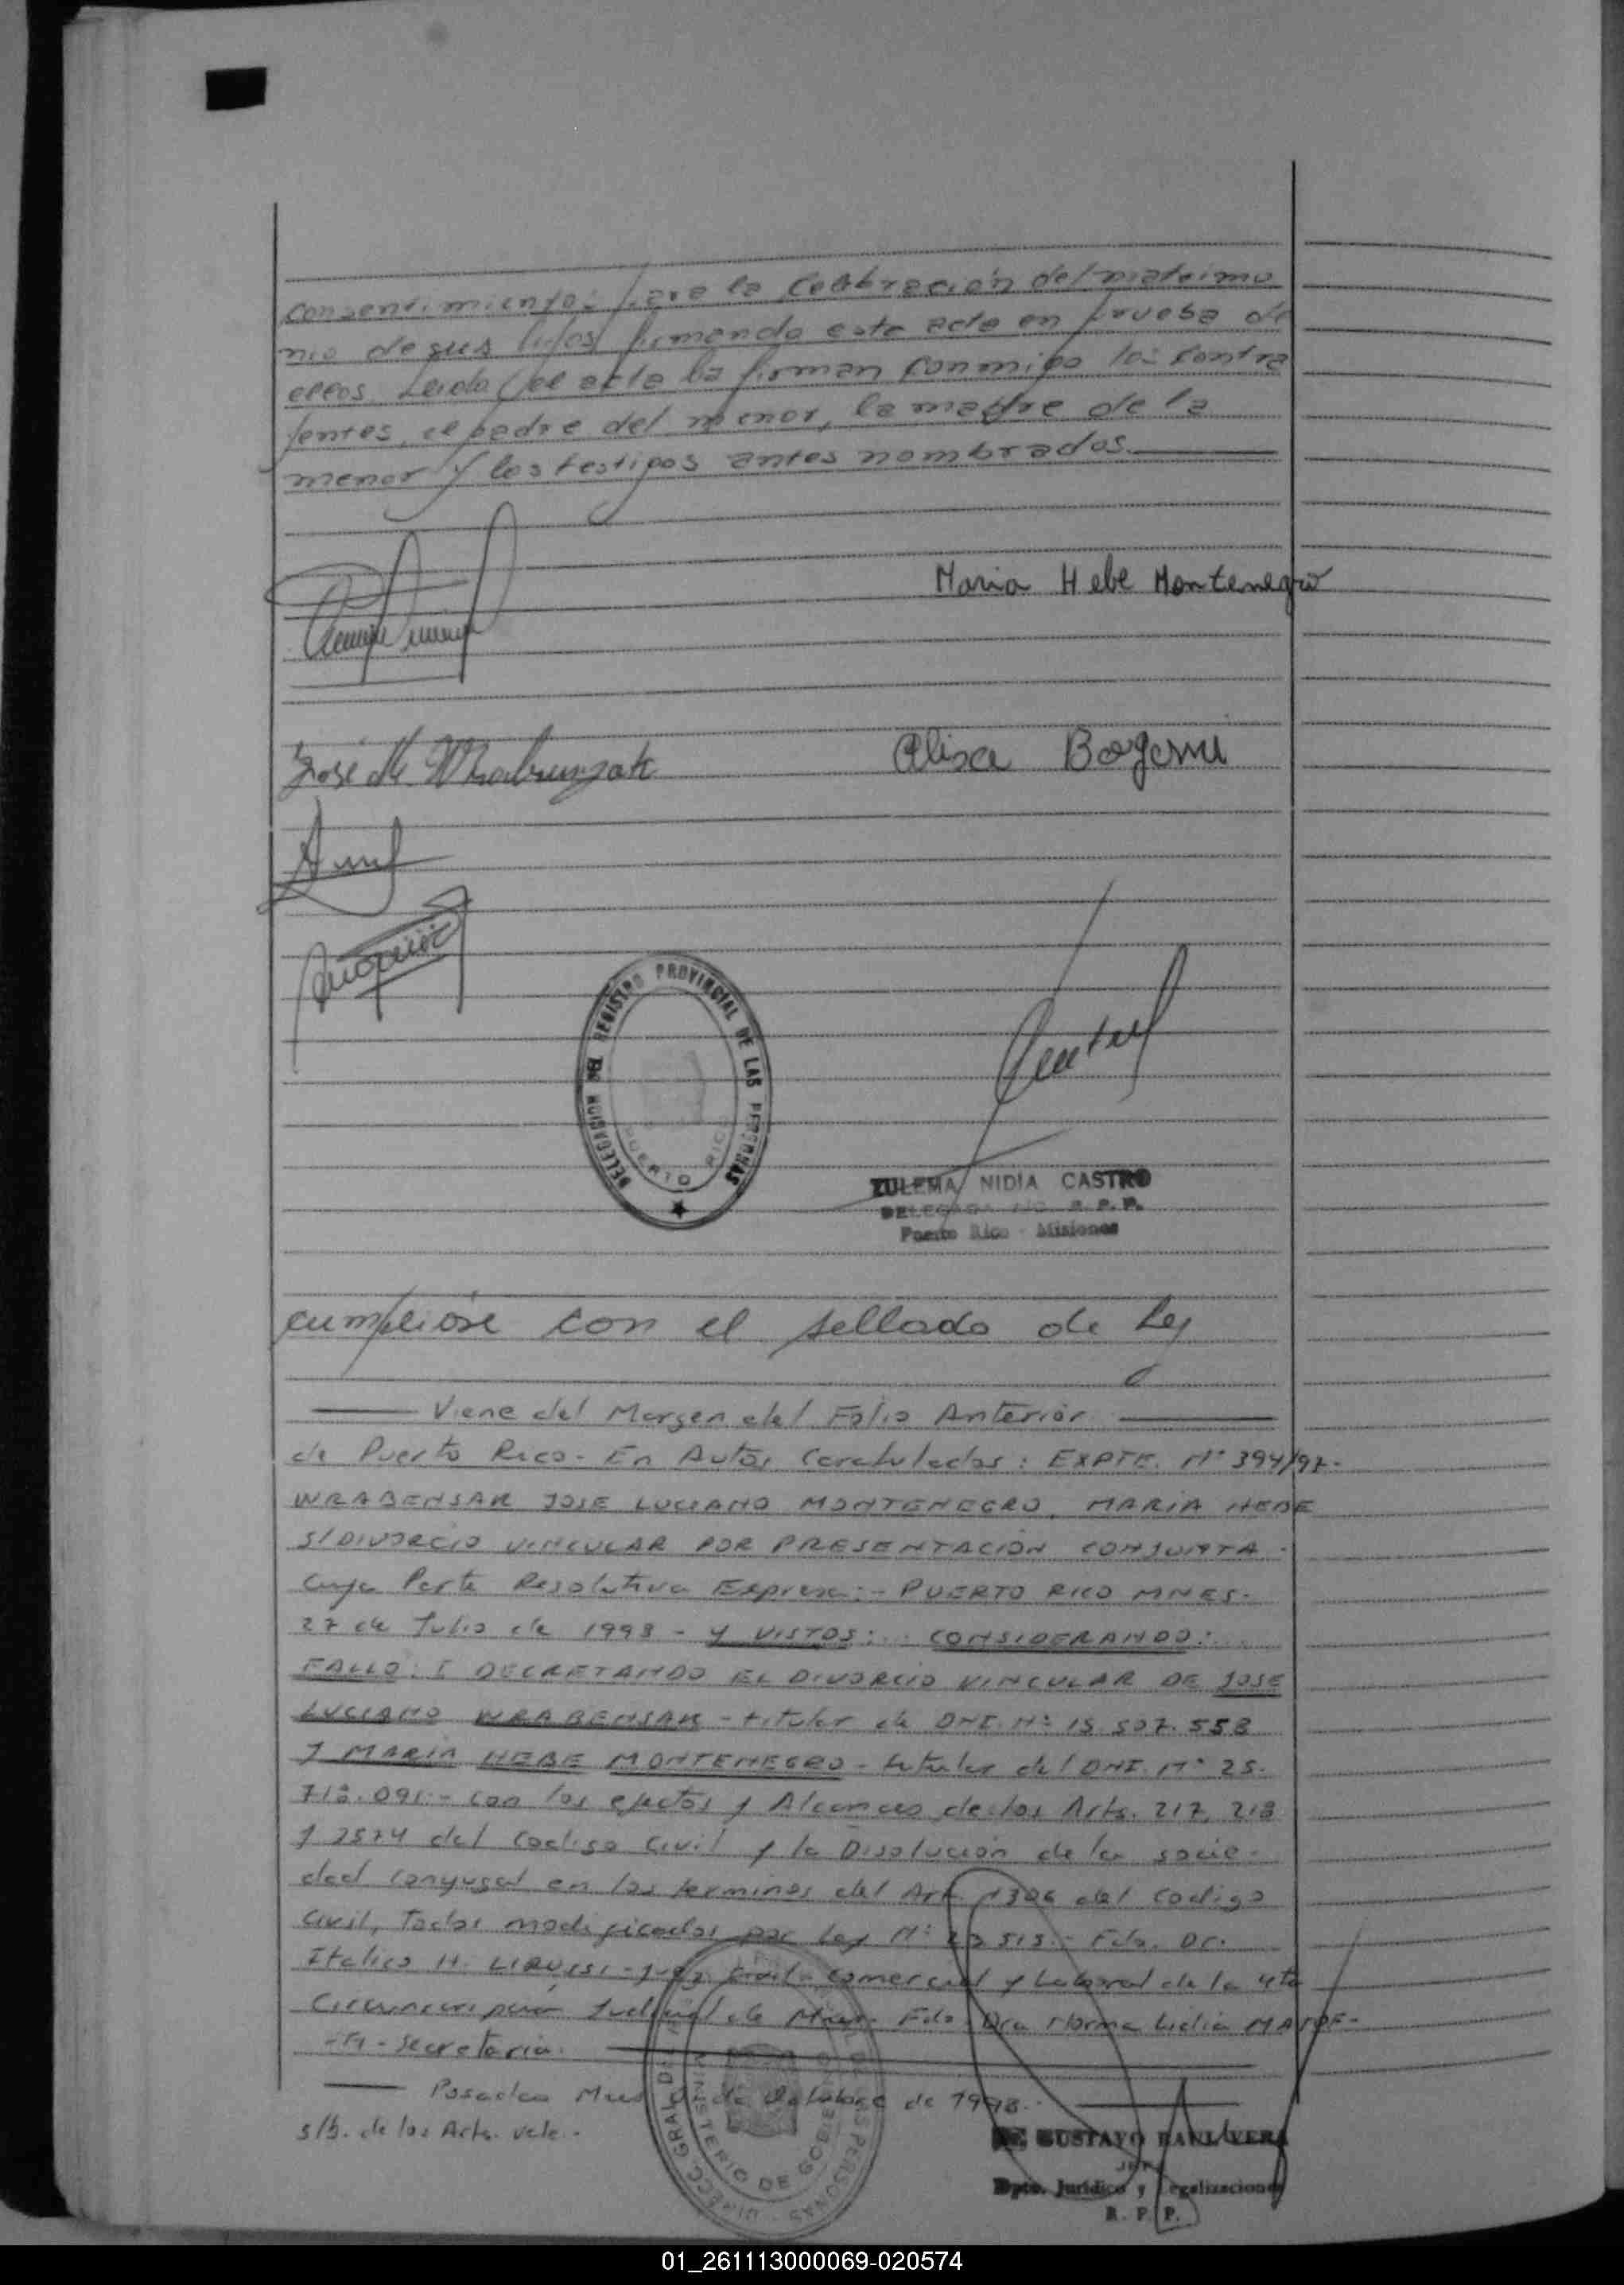 consentimientos para la celebración del matrimo
nio de sus hijos firmando este acta en prueba de
ellos. Leida el acta la firman conmigo los contra
yentes, el padre del menor, la madre de la
menor y los testigos antes nombrados.
Maria Hebe Montenegro
José M. Wrabenzak
DELEGACION DEL REGISTRO PROVINCIAL DE LAS PERSONAS
PUERTO RICO
ZULEMA NIDIA CASTRO
DELEGADA R. P. P.
Puerto Rico - Misiones
cumplióse con el sellado de Ley
Viene del Margen del Folio Anterior
de Puerto Rico - En Autos Caratulados: EXPTE. Nº 394/97-
WRABENSAK JOSE LUCIANO MONTENEGRO, MARIA HEBE
S/ DIVORCIO VINCULAR POR PRESENTACIÓN CONJUNTA -
Cuya Parte Resolutiva Expresa: - PUERTO RICO MNES.
27 de Julio de 1998 - Y VISTOS: .. CONSIDERANDO: ..
FALLO: I DECRETANDO EL DIVORCIO VINCULAR DE JOSE
LUCIANO WRABENSAK - titular de DNI. Nº 15.507.558
y MARIA HEBE MONTENEGRO - titular del DNI. Nº 25.
718.091 - con los efectos y Alcances de los Arts. 217, 218
y 2574 del Codigo Civil y la Disolución de la socie-
dad conyugal en los terminos del Art. 1306 del Codigo
Civil, todos modificados por Ley Nº 23.515. - Fdo. Dr.
Italico H. - Juez Civil - Comercial y Laboral de la 4ta
Circunscripción Judicial de Mnes - Fdo. Dra Norma Lidia
- Secretaria.
Posadas Mnes de Octubre de 1998. -
s/b. de los Arts. vale. -
DIRECC. GRAL. DE LAS PERSONAS
MINISTERIO DE GOBIERNO
GUSTAVO RAUL VERA
JEFE
Dpto. Jurídico y Legalizaciones
R. P. P.
01_261113000069-020574